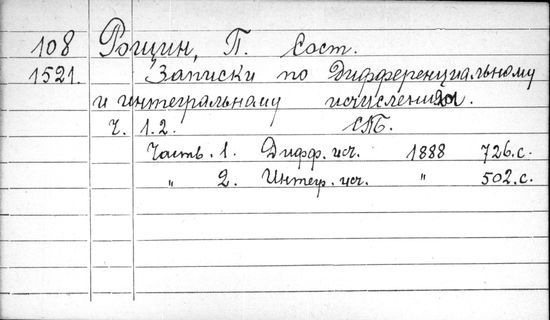 108 Рощин, П. Сост.
1521. Записки по Дифференциальному
и интегральному исчислениям.
Ч. 1.2. СПБ.
Часть. 1. Дифф. исч. 1888 726.с.
" 2. Интегр. исч. " 502.с.